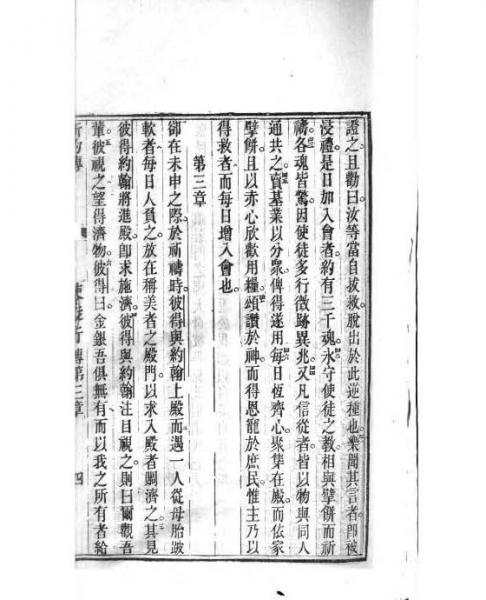 證之且勸曰汝等當自拔救脫出於此逆種也業聞其言者卽被
浸禮是日加入會者約有三千魂永守使徒之教相與擘餅而祈
禱各魂皆驚因使徒多行微跡異兆又凡信從者皆以物與同人
通共之賣基業以分眾俾得遂用每日恆齊心聚集在殿而依家
擘餅且以赤心欣歡用糧頌讚於神而得恩寵於庶民惟主乃以
得救者而每日增入會也
第三章
卻在未申之際於祈禱時彼得與約翰上殿而遇一人從母胎跛
軟者每日人負之放在稱美者之殿門以求入殿者賙濟之其見
彼得約翰將進殿卽求施濟彼得與約翰注目視之則曰爾觀吾
輩彼視之望得濟物彼得曰金銀吾俱無有而以我之所有者給
行傳第三章 四